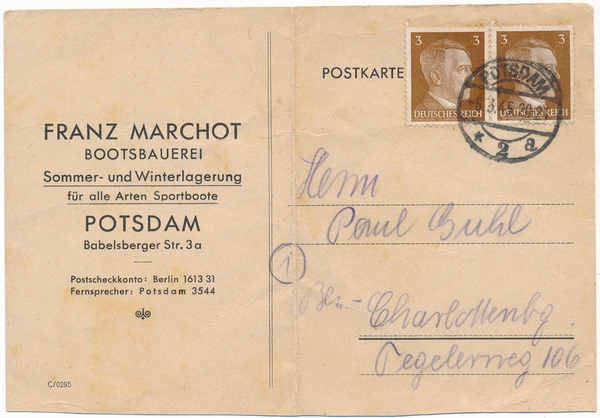 FRANZ MARCHOT
BOOTSBAUEREI
Sommer- und Winterlagerung
für alle Arten Sportboote
POTSDAM
Babelsberger Str. 3a
Postscheckkonto: Berlin 1613 31
Fernsprecher: Potsdam 3544
C/0295
POSTKARTE
3 3 3 3
DEUTSCHES REICH DEUTSCHES REICH
POTSDAM
2 a
Herrn
Paul Guhl
1
Bln-Charlottenbg.
Tegelerweg 106